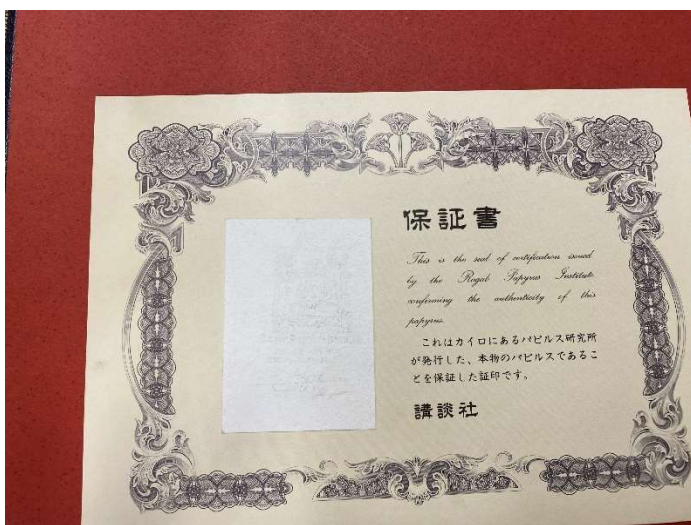 保証書
This is the seal of certification issued
by the Ragab Papyrus Institute
confirming the authenticity of this
papyrus.
これはカイロにあるパピルス研究所
が発行した、本物のパピルスであるこ
とを保証した証印です。
講談社